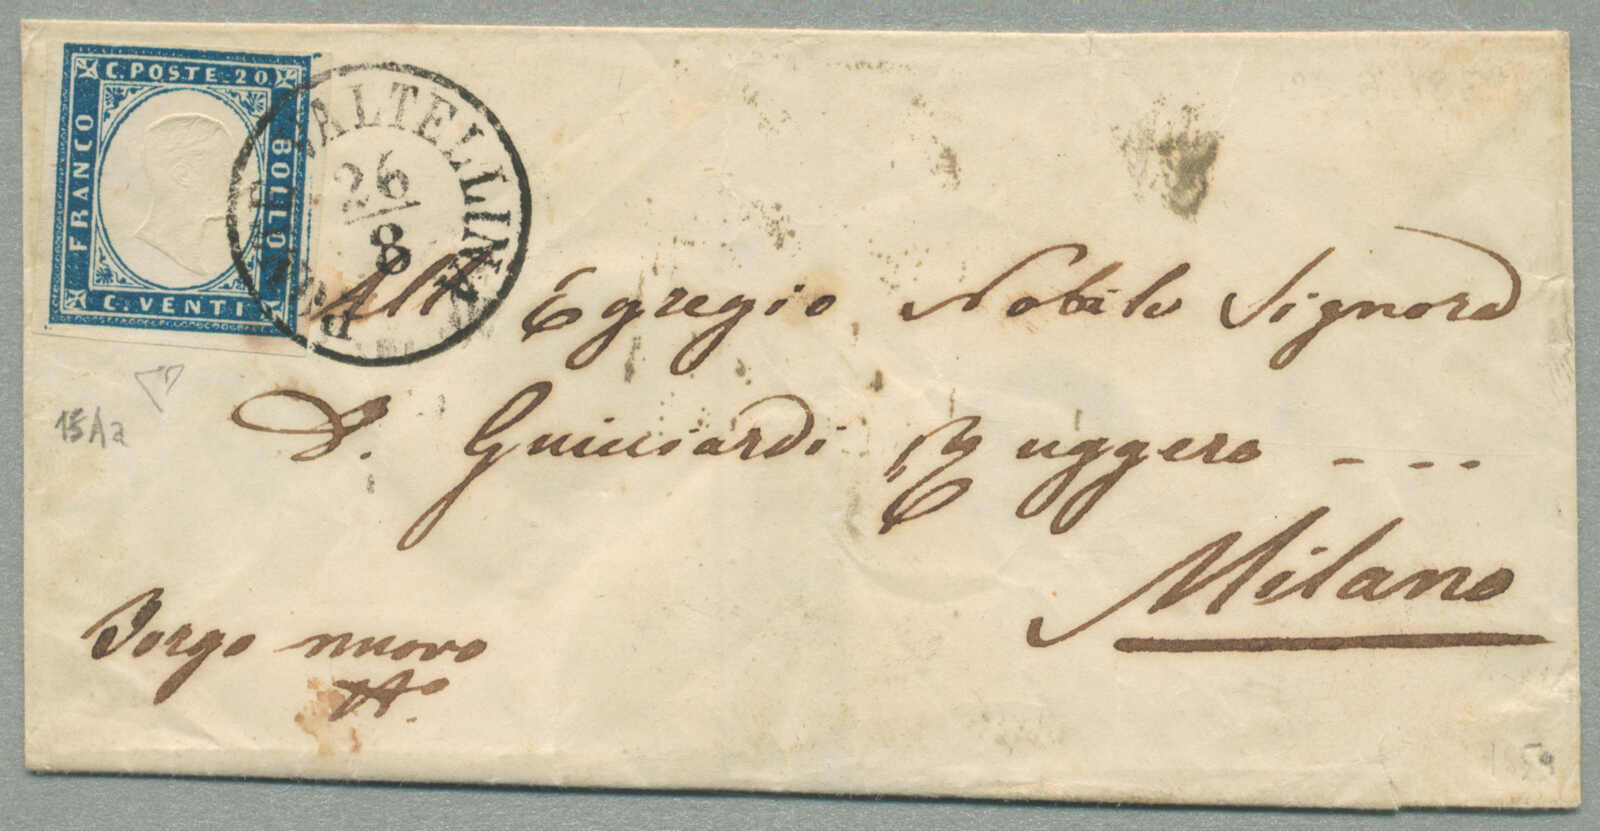 C. POSTE. 20
FRANCO
BOLLO
C. VENTI
VALTELLINA
26
8
All Egregio Nobile Signore
D. Guicciardi Ruggero - - -
Milano
Borgo nuovo
15Aa
1859